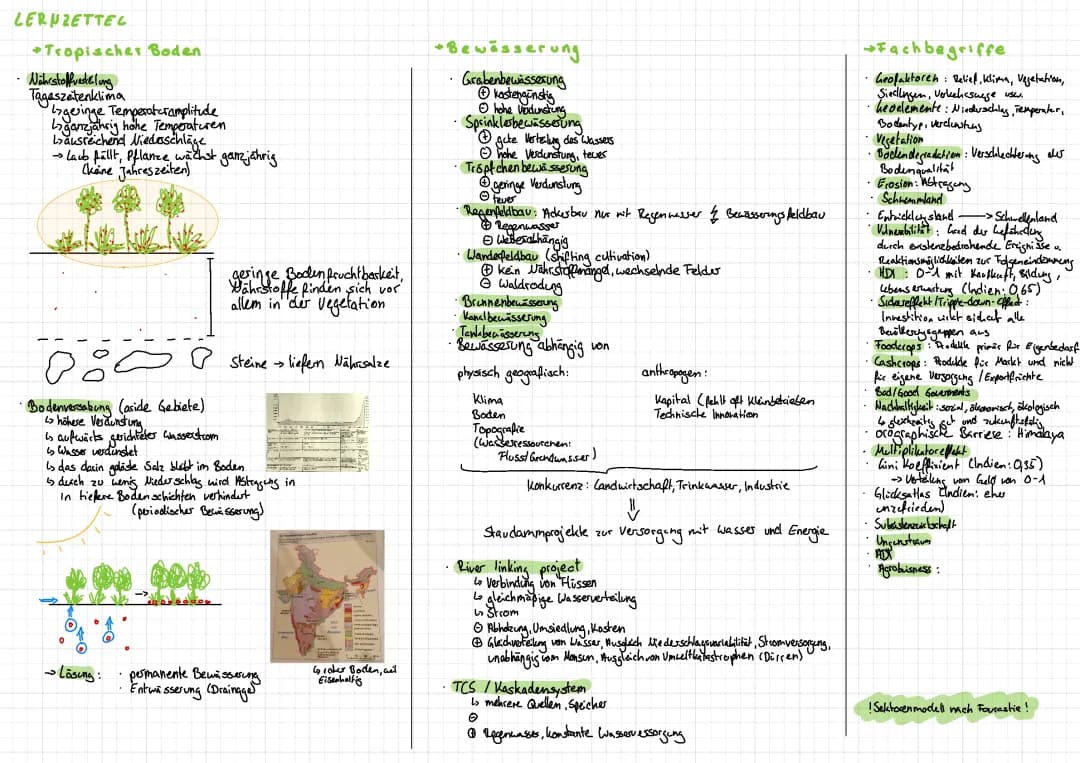 LERNZETTEL
→Tropischer Boden
· Nährstoffverteilung
Tageszeitenklima
↳geringe Temperaturamplitude
↳ganzjährig hohe Temperaturen
↳ausreichend Niederschläge
→ Laub fällt, Pflanze wächst ganzjährig
(keine Jahreszeiten)
geringe Bodenfruchtbarkeit,
Nährstoffe finden sich vor
allem in der Vegetation
Steine → liefern Nährsalze
· Bodenversalzung (aride Gebiete)
↳ höhere Verdunstung
↳ aufwärts gerichteter Wasserstrom
↳ Wasser verdunstet
↳ das darin gelöste Salz bleibt im Boden
↳ durch zu wenig Niederschlag wird Abtragung in
in tiefere Bodenschichten verhindert
(periodischer Bewässerung)
↳ roter Boden, weil
Eisenhaltig
→ Lösung: · permanente Bewässerung
· Entwässerung (Drainage)
→Bewässerung
· Grabenbewässerung
⊕ kostengünstig
⊖ hohe Verdunstung
· Sprinklerbewässerung
⊕ gute Verteilung des Wassers
⊖ hohe Verdunstung, teuer
· Tröpfchenbewässerung
⊕ geringe Verdunstung
⊖ teuer
· Regenfeldbau: Ackerbau nur mit Regenwasser ↯ Bewässerungsfeldbau
⊕ Regenwasser
⊖ Wetterabhängig
· Wanderfeldbau (shifting cultivation)
⊕ kein Nährstoffmangel, wechselnde Felder
⊖ Waldrodung
· Brunnenbewässerung
· Kanalbewässerung
· Tankbewässerung
· Bewässerung abhängig von
physisch geografisch: anthropogen:
Klima Kapital (fehlt oft Kleinbetrieben
Boden Technische Innovation
Topografie
(Wasserressourcen:
Fluss/Grundwasser)
Konkurrenz: Landwirtschaft, Trinkwasser, Industrie
⇓
Staudammprojekte zur Versorgung mit Wasser und Energie
· River linking project
↳ Verbindung von Flüssen
↳ gleichmäßige Wasserverteilung
↳ Strom
⊖ Abholzung, Umsiedlung, Kosten
⊕ Gleichverteilung von Wasser, Ausgleich Niederschlagsvariabilität, Stromversorgung,
unabhängig vom Monsun, Ausgleich von Umweltkatastrophen (Dürren)
· TCS / Kaskadensystem
↳ mehrere Quellen, Speicher
⊖
⊕ Regenwasser, konstante Wasserversorgung
→Fachbegriffe
· Geofaktoren: Relief, Klima, Vegetation,
Siedlungen, Verkehrswege usw.
· Geoelemente: Niederschlag, Temperatur,
Bodentyp, Verdunstung
· Vegetation
· Bodendegradation: Verschlechterung der
Bodenqualität
· Erosion: Abtragung
· Schwemmland
· Entwicklungsland → Schwellenland
· Vulnerabilität: Grad der Gefährdung
durch existenzbedrohende Ereignisse u.
Reaktionsmöglichkeiten zur Folgeneindämmung
· HDI: 0-1 mit Kaufkraft, Bildung,
Lebenserwartung (Indien: 0,65)
· Sickereffekt/Trickle-down-Effekt:
Investition wirkt sich auf alle
Bevölkerungsgruppen aus
· Foodcrops: Produkte primär für Eigenbedarf
· Cashcrops: Produkte für Markt und nicht
für eigene Versorgung / Exportfrüchte
· Bad/Good Goverments
· Nachhaltigkeit: sozial, ökonomisch, ökologisch
↳ gleichzeitig gut und zukunftsfähig
· orographische Barriere: Himalaya
· Multiplikatoreffekt
· Gini Koeffizient (Indien: 0,35)
→ Verteilung von Geld von 0-1
· Glücksatlas (Indien: eher
unzufrieden)
· Subsistenzwirtschaft
· Ungunstraum
· ADI
· Agrobusiness:
!Sektorenmodell nach Fourastie!